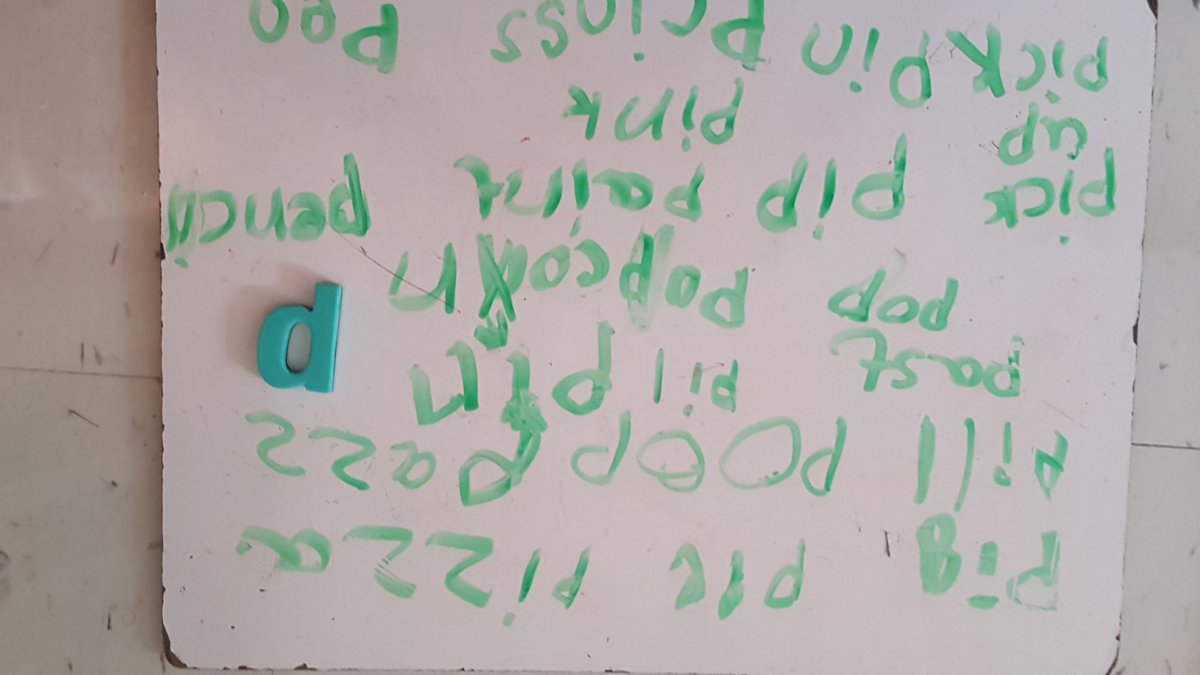 pig pie pizza
pill poop pazz
past pil pin
pop popcorn p
pick pip paint pencil
up pink
pick pin prinss